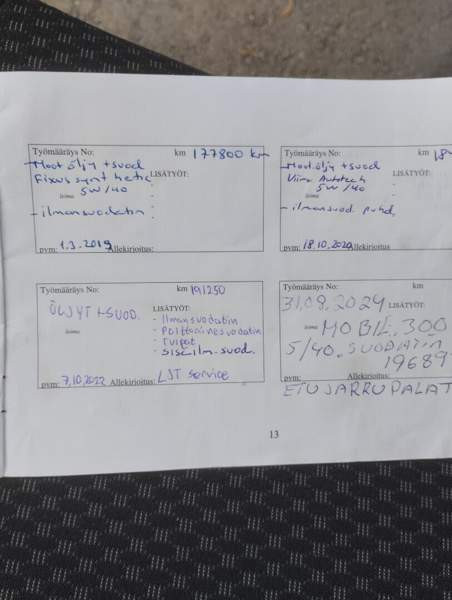 Työmääräys No: km 177800 km
- Moot.öljy + suod
Fixus synt hetic LISÄTYÖT:
5W/40
- ilmansuodatin
pvm: 1.3.2019 Allekirjoitus:
Työmääräys No: km 184
- Moot.öljy + suod
LISÄTYÖT:
5W/40
- ilmansuod. puhd.
pvm: 18.10.2020 Allekirjoitus:
Työmääräys No: km 191250
ÖLJYT + SUOD. LISÄTYÖT:
- Ilmansuodatin
- Polttoainesuodatin
- Tulpat
- Sisäilm. suod.
pvm: 7.10.2022 Allekirjoitus: LJT Service
Työmääräys No: km
31.08.2024 LISÄTYÖT:
MOBIL.300
5/40. SUODATIN
19689
pvm: Allekirjoitus:
ETUJARRUPALAT
13